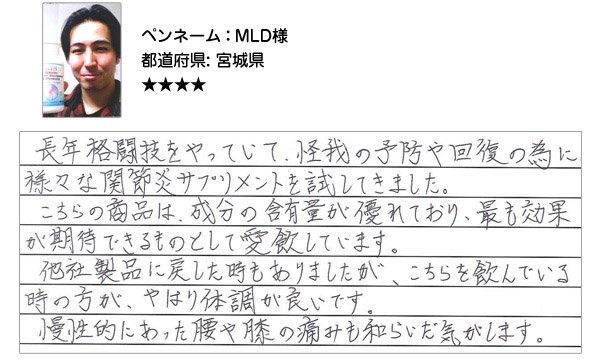 ペンネーム：MLD様
都道府県: 宮城県
★★★★
長年格闘技をやっていて、怪我の予防や回復の為に
様々な関節炎サプリメントを試してきました。
こちらの商品は、成分の含有量が優れており、最も効果
が期待できるものとして愛飲しています。
他社製品に戻した時もありましたが、こちらを飲んでいる
時の方が、やはり体調が良いです。
慢性的にあった腰や膝の痛みも和らいだ気がします。